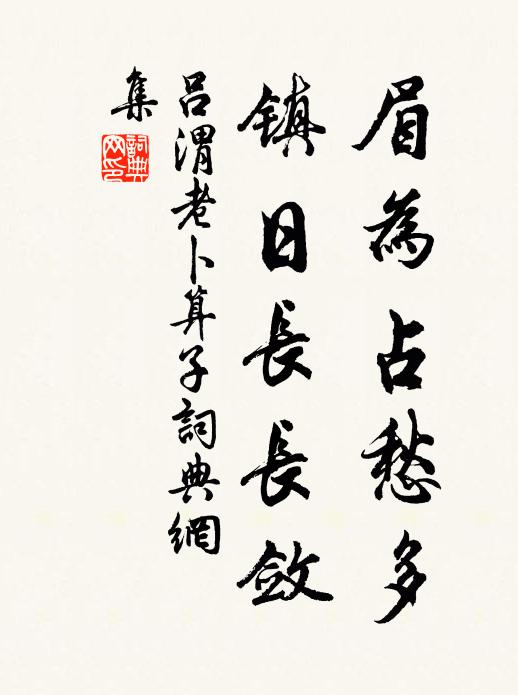 眉為占愁多
鎮日長長斂
呂渭老卜算子詞典網
集
詞典網印